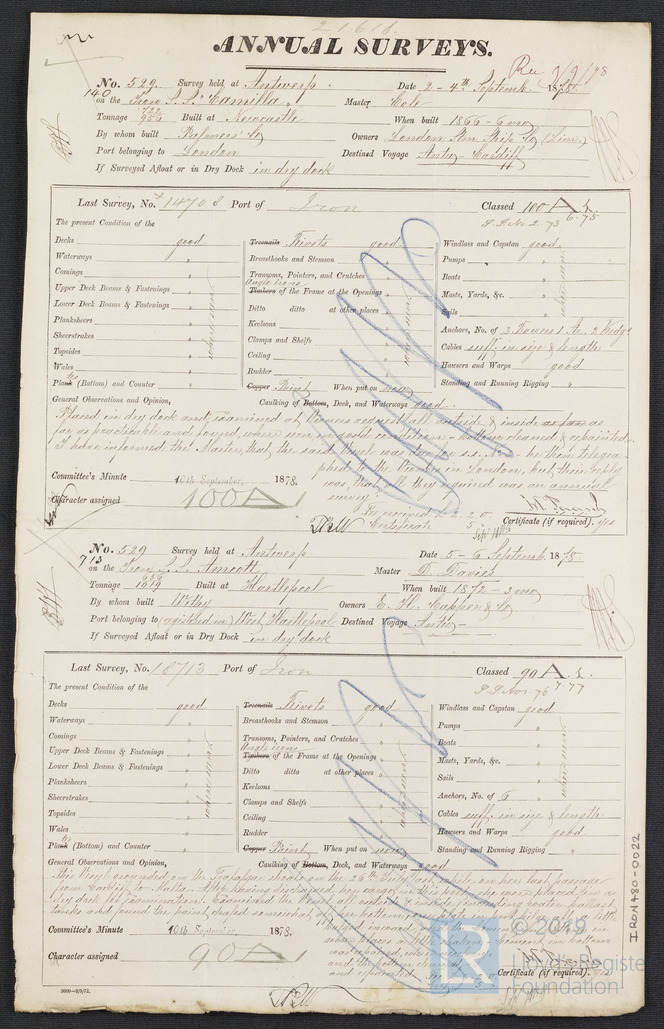 21618
ANNUAL SURVEYS.
Rec 9/9/78
No. 529. Survey held at Antwerp. Date 2 - 4th September 1878.
140 on the Screw S.S. "Camilla" Master Cole
Tonnage 722 956 Built at Newcastle When built 1866 - 6 mo
By whom built Palmers' Co Owners London Stm Ship Co (Lim.)
Port belonging to London Destined Voyage Antwp - Cardiff
If Surveyed Afloat or in Dry Dock in dry dock
Last Survey, No. 14708 Port of Iron Classed 100 A 1.
S.S. No. 2. 73 6.75
The present Condition of the
Decks good
Waterways "
Comings "
Upper Deck Beams & Fastenings "
Lower Deck Beams & Fastenings "
Planksheers "
Sheerstrakes "
Topsides "
Wales "
Plank (Bottom) and Counter "
where seen
Treenails Rivets good
Breasthooks and Stemson "
Transoms, Pointers, and Crutches "
Angle irons
Timbers of the Frame at the Openings "
Ditto ditto at other places "
Keelsons "
Clamps and Shelfs "
Ceiling "
Rudder "
Copper Paint When put on now
where seen
Windlass and Capstan good
Pumps "
Boats "
Masts, Yards, &c. "
Sails "
where seen
Anchors, No. of 3 Bowers 1 St. 2 Kedgs
Cables suff. in size & length
Hawsers and Warps good
Standing and Running Rigging "
General Observations and Opinion, Caulking of Bottom, Deck, and Waterways good
Placed in dry dock and examined at Owners request all outside & inside as far as
far as practicable and found, where seen in good condition - bottom cleaned & repainted.
I have informed the Master, that the said vessel was due for s.s. No. - he then telegra
phed to the Owners in London, but their reply
was, that all they required was an annual
survey.
Committee's Minute 10th September, 1878.
Character assigned 100A1
Certificate (if required). yes
No. 529 Survey held at Antwerp Date 5 - 6 September 1878.
713 on the Screw S.S. Amcott Master D. Davies
Tonnage 1619 Built at Hartlepool When built 1872 - 3 mo
By whom built Withy Owners E. H. Capper & Co
Port belonging to (registered in) West Hartlepool Destined Voyage Antwp -
If Surveyed Afloat or in Dry Dock in dry dock
Last Survey, No. 18713 Port of Iron Classed 90 A 1.
S.S. No 1 76 7.77
The present Condition of the
Decks good
Waterways "
Comings "
Upper Deck Beams & Fastenings "
Lower Deck Beams & Fastenings "
Planksheers "
Sheerstrakes "
Topsides "
Wales "
Plank (Bottom) and Counter "
where seen
Treenails Rivets good
Breasthooks and Stemson "
Transoms, Pointers, and Crutches "
Angle irons
Timbers of the Frame at the Openings "
Ditto ditto at other places "
Keelsons "
Clamps and Shelfs "
Ceiling "
Rudder "
Copper Paint When put on now
where seen
Windlass and Capstan good
Pumps "
Boats "
Masts, Yards, &c. "
Sails "
where seen
Anchors, No. of 6 "
Cables suff. in size & length
Hawsers and Warps good
Standing and Running Rigging "
General Observations and Opinion, Caulking of Bottom, Deck, and Waterways good
This vessel grounded on the Trafalgar shoals on the 25th August last, while on her last passage
from Cardiff to Malta. After having discharged her cargo in this port, she was placed in a
dry dock for examination. Examined the vessel all outside & inside, including water ballast
tanks and found the paint chafed somewhat
Committee's Minute 10th September, 1878.
Character assigned 90A1
Certificate (if required).
3000-9/9/72.
IRON480-0022
© 2019
Lloyd's Register
Foundation